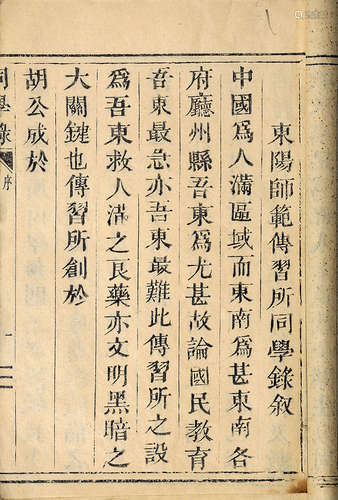 東陽師範傳習所同學錄敘
中國爲人滿區域而東南爲甚東南各
府廳州縣吾東爲尤甚故論國民教育
吾東最急亦吾東最難此傳習所之設
爲吾東救人滿之良藥亦文明黑暗之
大關鍵也傳習所創於
胡公成於
同學錄
序
一